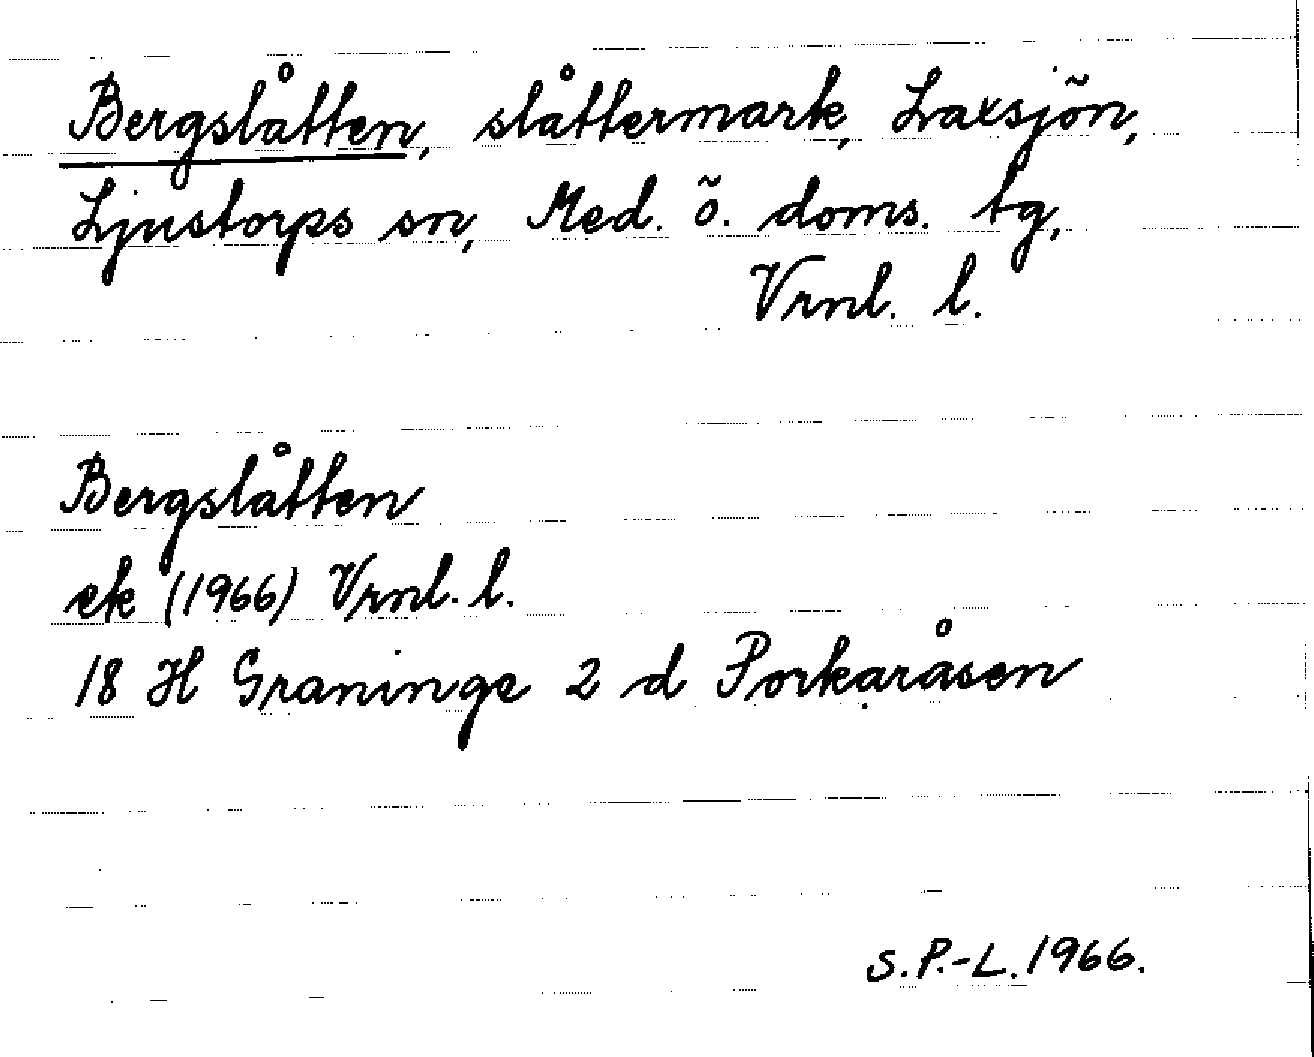 Bergslåtten, slåttermark, Laxsjön,
Ljustorps sn, Med. ö. doms. tg,
Vrnl. l.
Bergslåtten
ek (1966) Vrnl. l.
18 H Graninge 2 d Porkaråsen
S.P.-L. 1966.